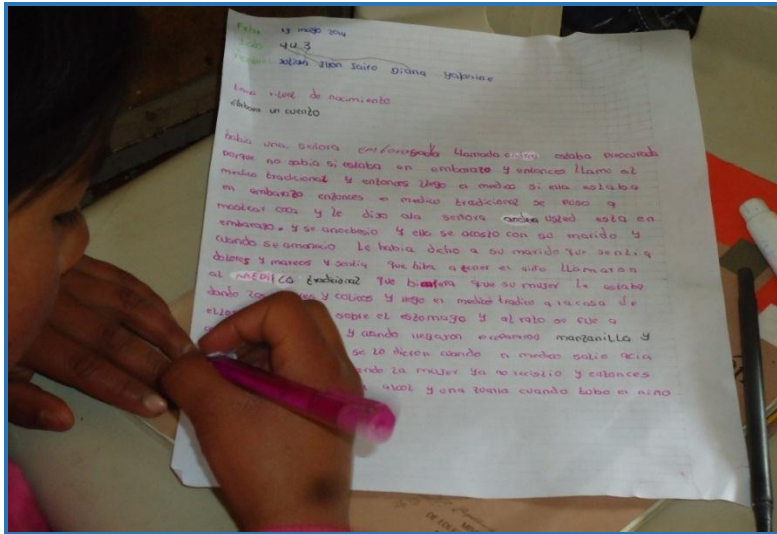 Fecha 13 mayo 2014
4U.3
Yulian Jhon Jairo Diana Yasmine
Tema ritual de nacimiento
elabora un cuento
habia una señora embarazada llamada estaba preocupada
porque no sabia si estaba en embarazo y entonces llamo al
medico tradicional y entonces llego a medico si ella estaba
en embarazo entonces el medico tradicional se puso a
mascar coca y le dijo ala señora andrea usted esta en
embarazo. y se anochesio y ella se acosto con su marido y
cuando su amanecio le habia dicho a su marido que sentia
dolores y mareos y sentia que hiba a tener el niño llamaron
al medico tradicional que su mujer le estaba
dando y colicos y llego el medico tradico a la casa de
sobre el estomago y al rato se fue a
y cuando llegaron manzanilla y
se lo dieron cuando el medico salio acia
ando la mujer ya no recistio y entonces
alcol y una toalla cuando tubo el niño
DE EDU